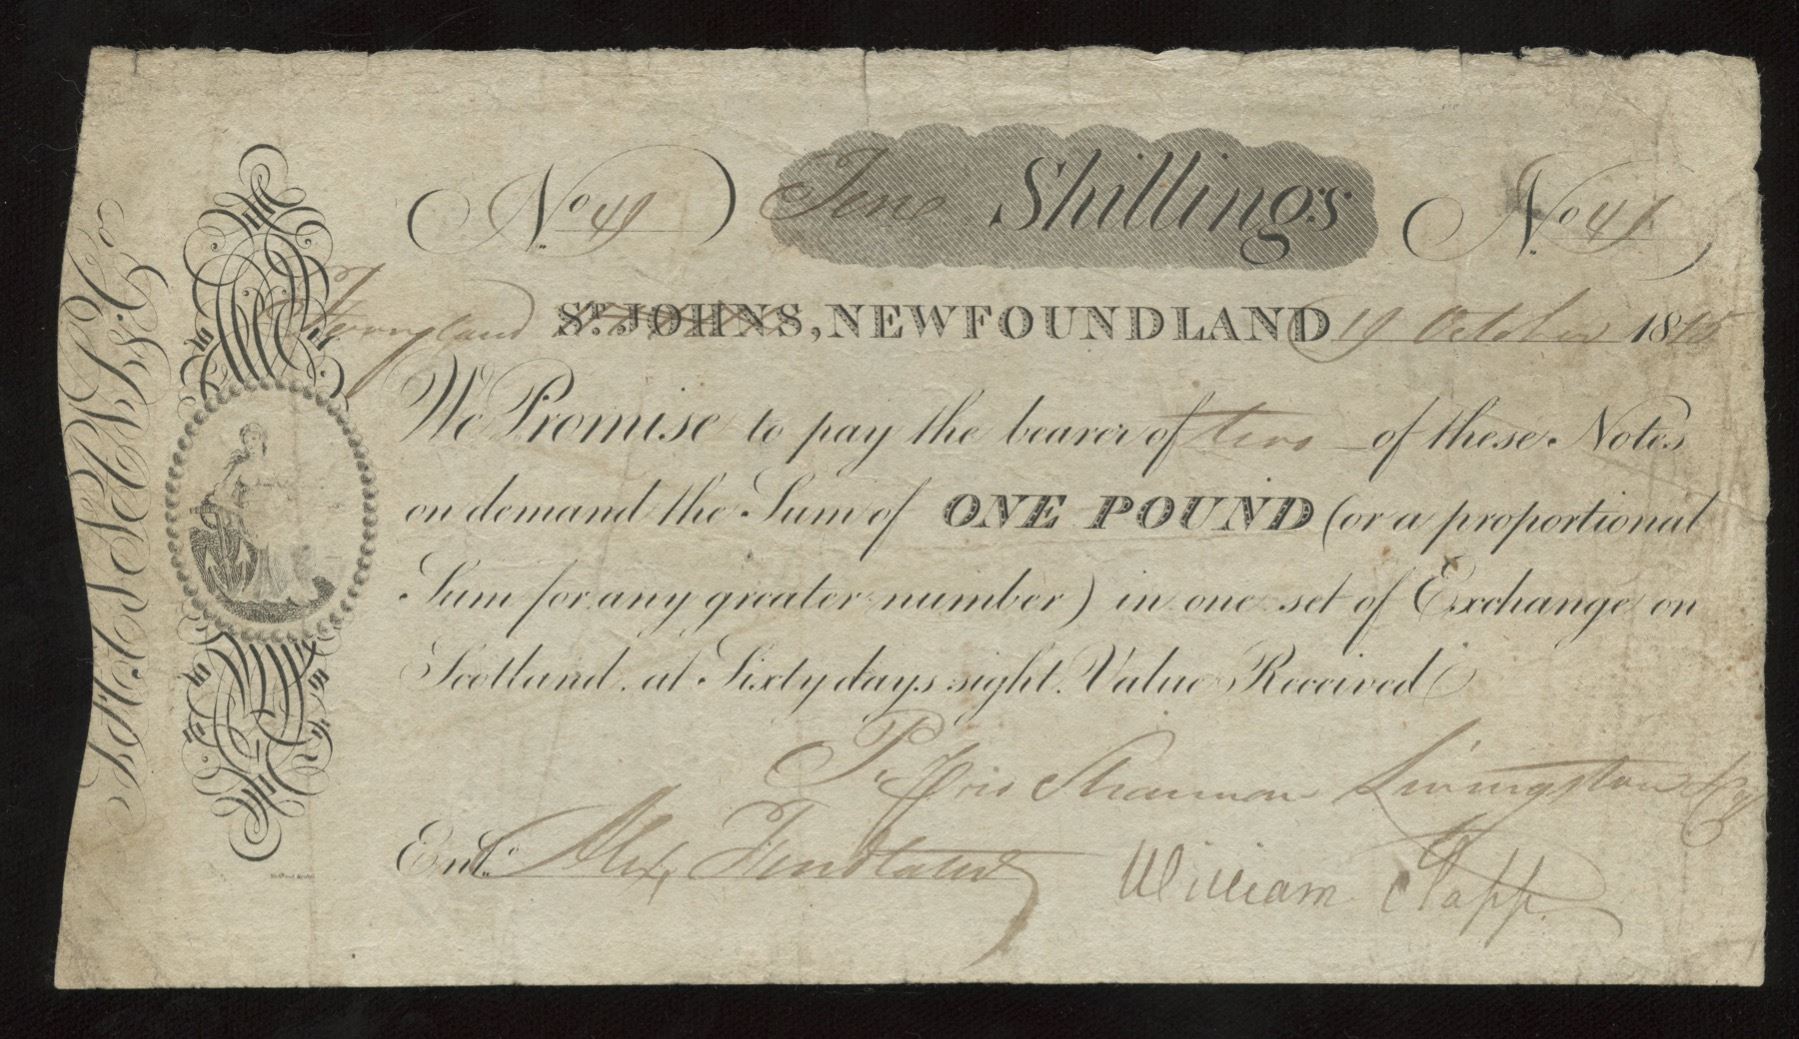 No 49 Ten Shillings No 49
Ferryland St. JOHNS, NEWFOUNDLAND 19 October 1815
We Promise to pay the bearer of two of these Notes
on demand the Sum of ONE POUND (or a proportional
Sum for any greater number) in one set of Exchange on
Scotland. at Sixty days sight. Value Received
P. Hris Shannon Livingston & Co
Entd. Alex
William Clapp